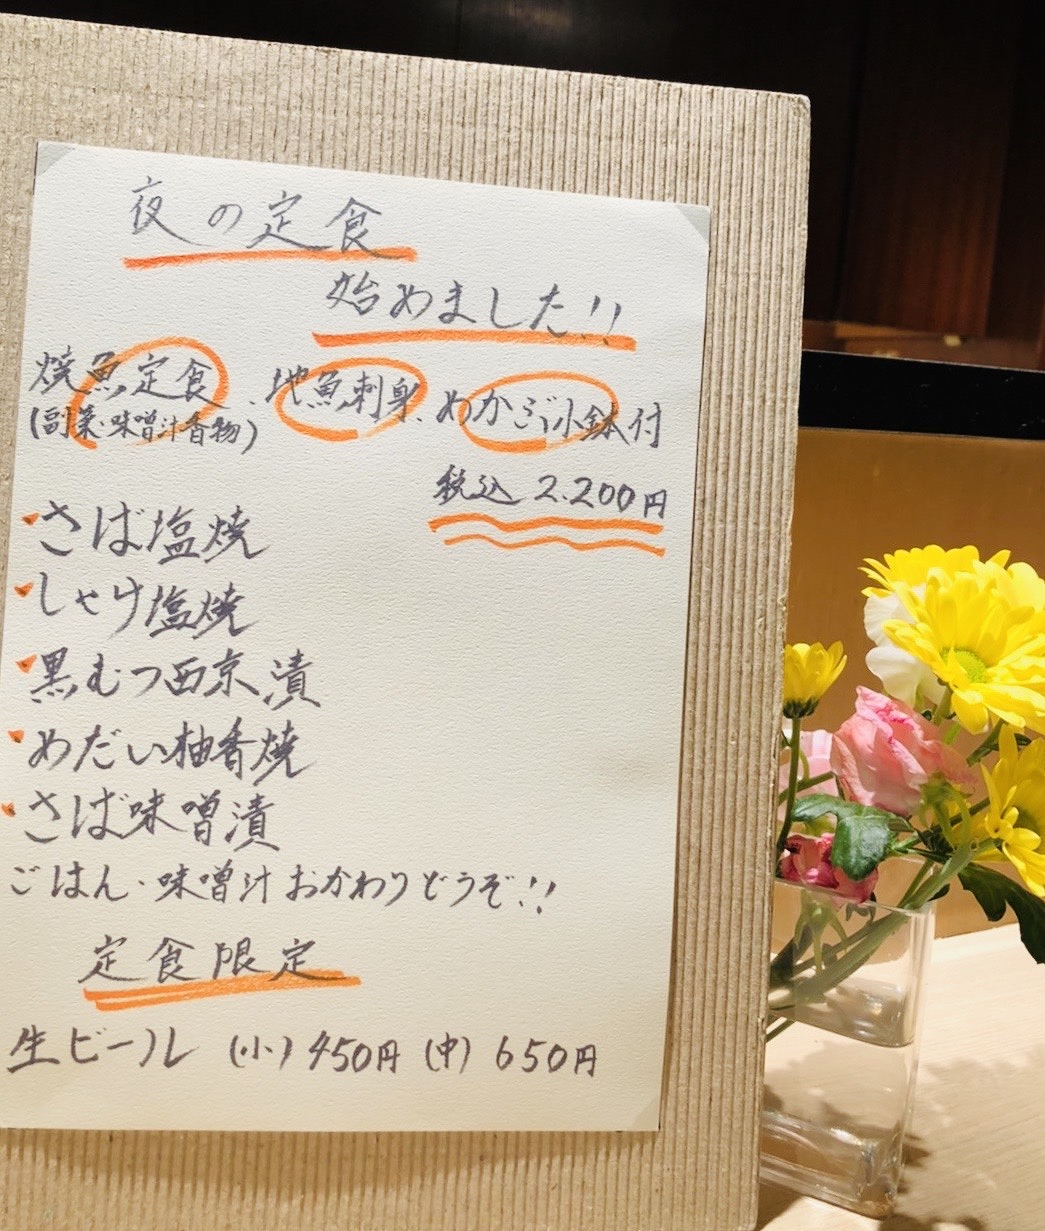 夜の定食
始めました!!
焼魚定食、地魚刺身、めかぶ小鉢付
(副菜・味噌汁香物)
税込 2.200円
さば塩焼
しゃけ塩焼
黒むつ西京漬
めだい柚香焼
さば味噌漬
ごはん・味噌汁おかわりどうぞ!!
定食限定
生ビール (小) 450円 (中) 650円